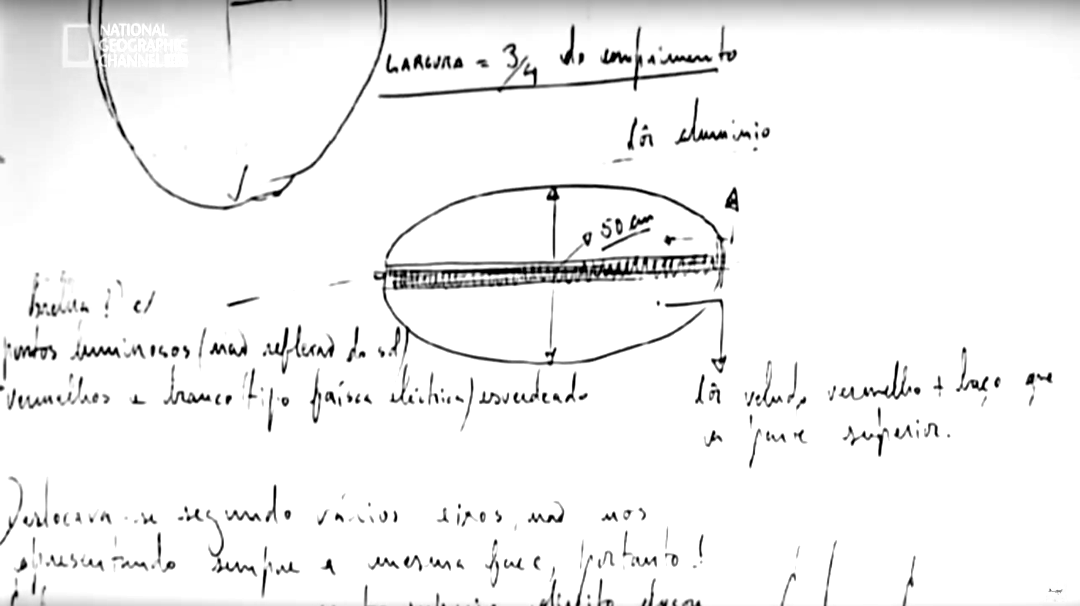 NATIONAL
GEOGRAPHIC
CHANNEL
LARGURA = 3/4 do comprimento
Côr aluminio
50 cm
pontos luminosos (não reflexão do sol)
vermelhos e branco (tipo faísca eléctrica) esverdeado
Côr veludo vermelho + baço que
a parte superior.
Deslocava-se segundo vários eixos, não nos
apresentando sempre a mesma face, portanto!